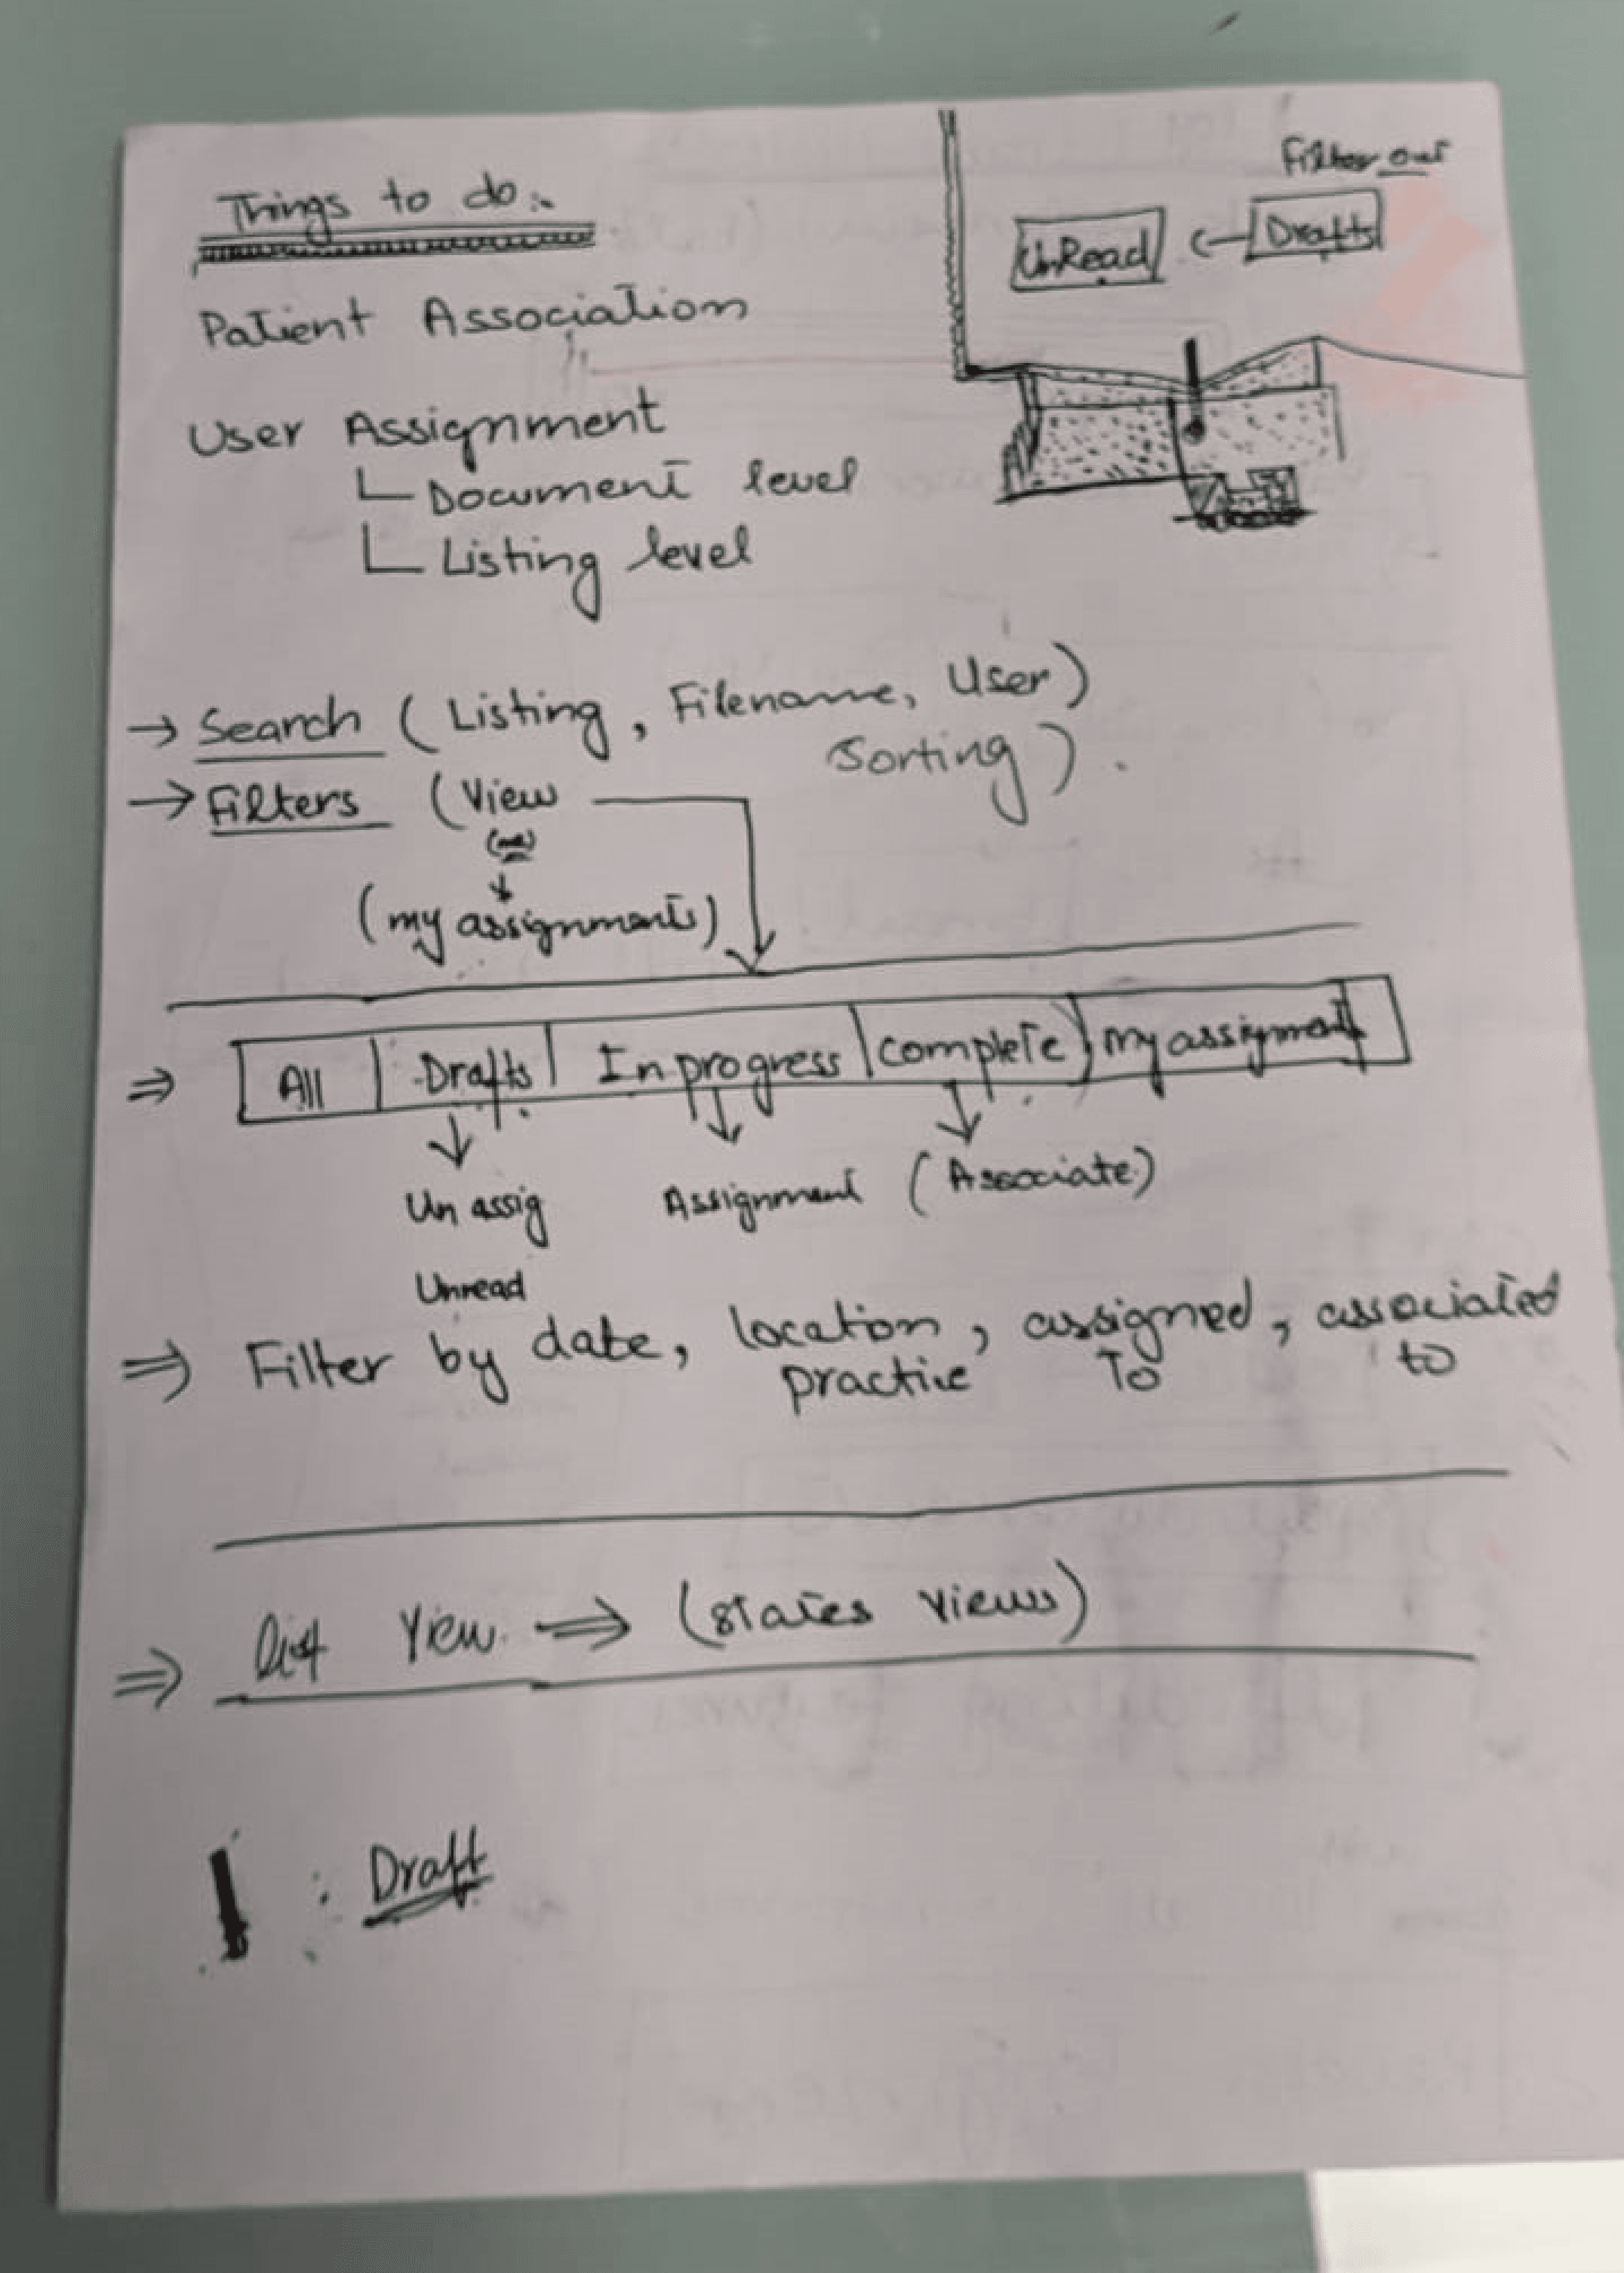 Things to do:-
Filter out
UnRead
Drafts
Patient Association
User Assignment
Document level
Listing level
→ Search (Listing, Filename, User)
Sorting).
→ Filters (View
(my assignments)
⇒ All Drafts In progress Complete My assignment
Un assig Assignment (Associate)
Unread
⇒ Filter by date, location, assigned, associated
practice To to
⇒ List View ⇒ (states views)
: Draft